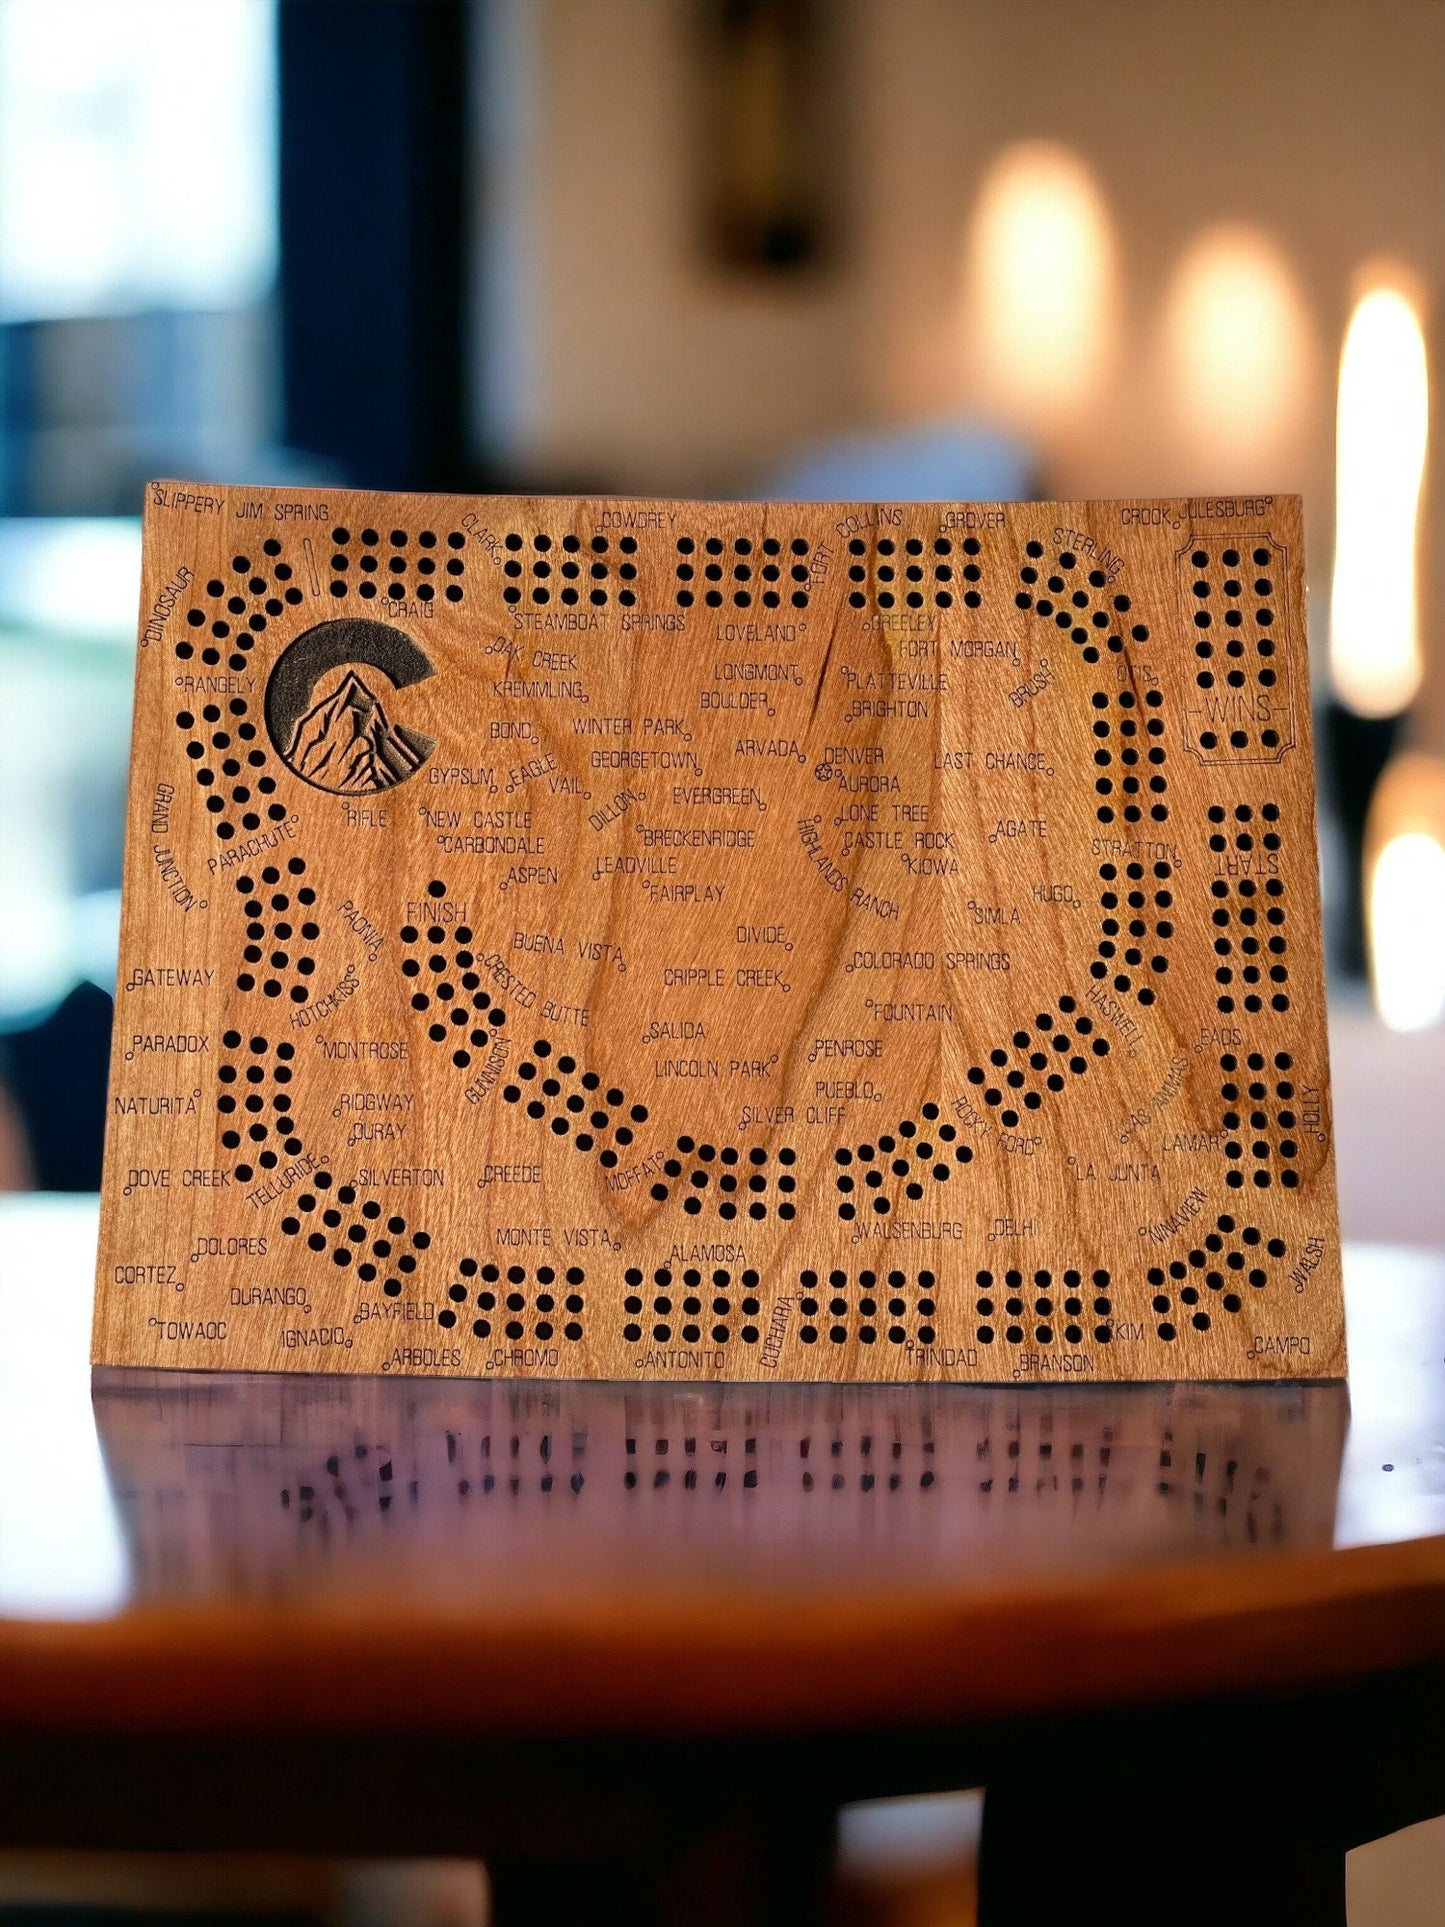 SLIPPERY JIM SPRING
COWDREY
FORT COLLINS
GROVER
CROOK
JULESBURG
CLARK
STERLING
DINOSAUR
CRAIG
STEAMBOAT SPRINGS
LOVELAND
GREELEY
OAK CREEK
FORT MORGAN
RANGELY
KREMMLING
LONGMONT
PLATTEVILLE
BRUSH
OTIS
BOULDER
BRIGHTON
WINS
BOND
WINTER PARK
ARVADA
DENVER
GEORGETOWN
LAST CHANCE
GYPSUM
EAGLE
VAIL
AURORA
DILLON
EVERGREEN
RIFLE
NEW CASTLE
LONE TREE
AGATE
GRAND JUNCTION
PARACHUTE
CARBONDALE
BRECKENRIDGE
HIGHLANDS RANCH
CASTLE ROCK
STRATTON
START
ASPEN
LEADVILLE
KIOWA
FAIRPLAY
HUGO
PAONIA
FINISH
SIMLA
BUENA VISTA
DIVIDE
GATEWAY
HOTCHKISS
CRESTED BUTTE
CRIPPLE CREEK
COLORADO SPRINGS
FOUNTAIN
HASWELL
PARADOX
MONTROSE
GUNNISON
SALIDA
LINCOLN PARK
PENROSE
EADS
NATURITA
RIDGWAY
PUEBLO
LAS ANIMAS
HOLLY
OURAY
SILVER CLIFF
ROCKY FORD
LAMAR
DOVE CREEK
TELLURIDE
SILVERTON
CREEDE
MOFFAT
LA JUNTA
DOLORES
MONTE VISTA
WALSENBURG
DELHI
NINAVIEW
ALAMOSA
WALSH
CORTEZ
DURANGO
BAYFIELD
CUCHARA
TOWAOC
IGNACIO
KIM
ARBOLES
CHROMO
ANTONITO
TRINIDAD
BRANSON
CAMPO